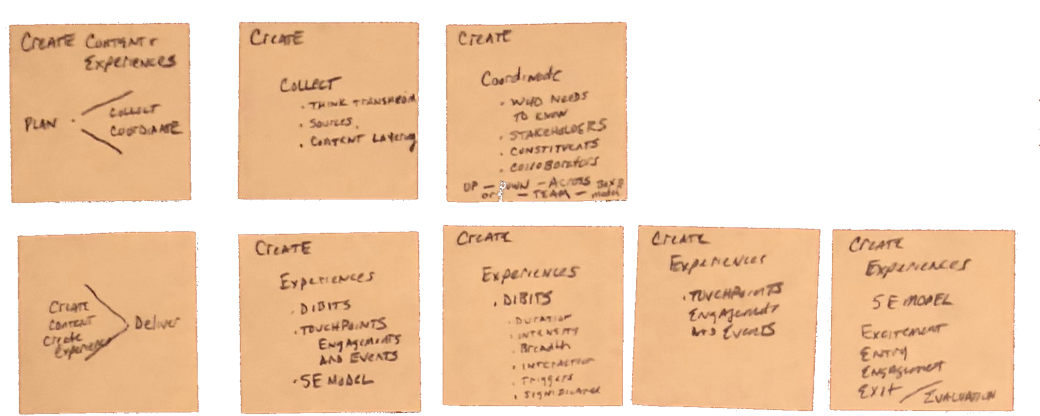 CREATE CONTENT &
EXPERIENCES
PLAN
COLLECT
COORDINATE
CREATE
COLLECT
• THINK
• SOURCES
• CONTENT LAYERING
CREATE
Coordinate
• WHO NEEDS
TO KNOW
• STAKEHOLDERS
• CONSTITUENTS
• COLLOBORATORS
UP — DOWN — ACROSS
or — TEAM — model
CREATE
CONTENT
Create
Experiences
Deliver
CREATE
Experiences
• DIBITS
• TOUCHPOINTS
ENGAGEMENTS
AND EVENTS
• 5E MODEL
CREATE
Experiences
• DIBITS
• DURATION
• INTENSITY
• Breadth
• INTERACTION
• Triggers
• SIGNIFICANCE
CREATE
Experiences
• TOUCHPOINTS
ENGAGEMENT
AND EVENTS
CREATE
Experiences
5E MODEL
EXCITEMENT
ENTRY
ENGAGEMENT
EXIT / EVALUATION